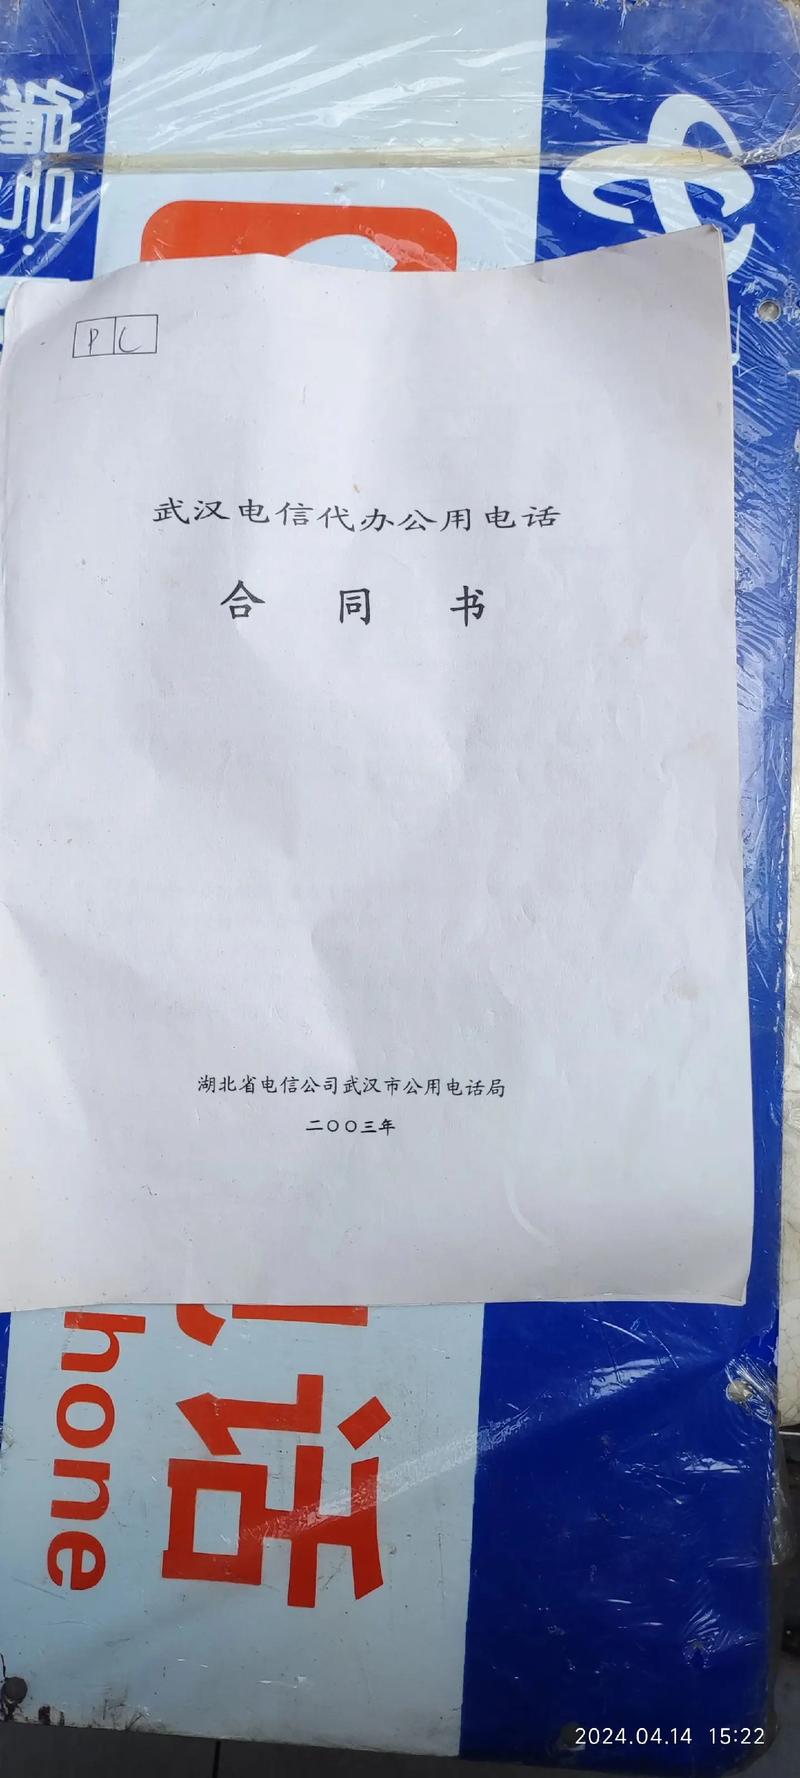 编号:
P C
武汉电信代办公用电话
合 同 书
湖北省电信公司武汉市公用电话局
二〇〇三年
话
hone
2024.04.14 15:22